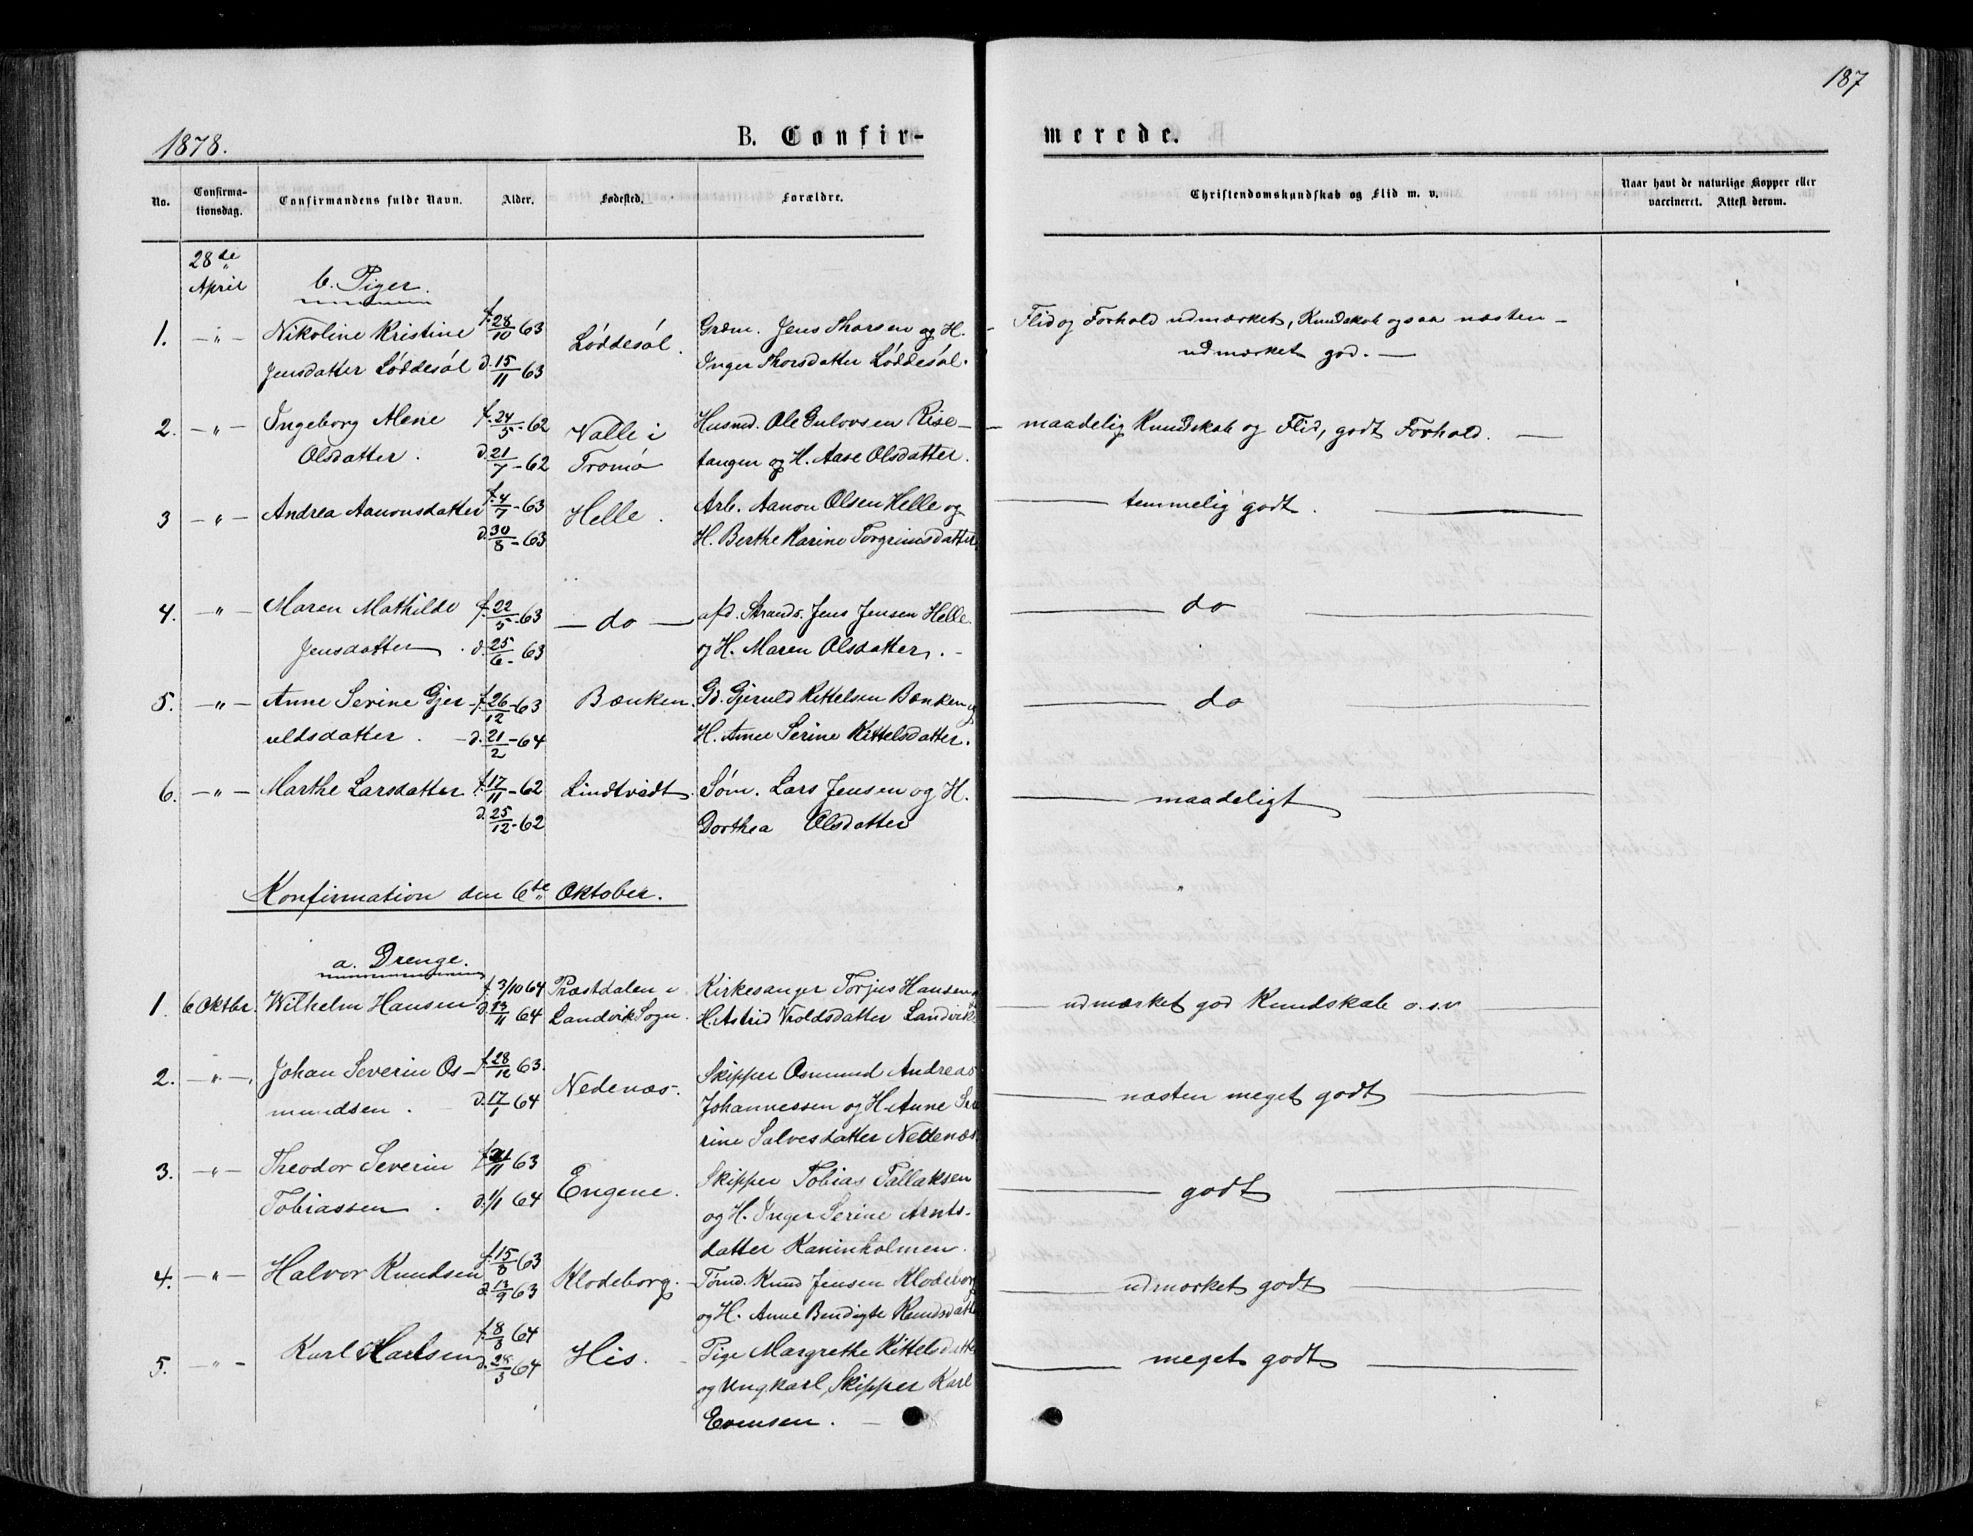 187
1878.
B. Confir-
merede.
No.
Confirma-
tionsdag.
Confirmandens fulde Navn.
Alder.
Fødested.
Forældre.
Christendomskundskab og Flid m. v.
Naar havt de naturlige Kopper eller
vaccineret. Attest derom.
28de
April
b. Piger.
1. — " — Nikoline Kristine f. 28/10 63 Løddesøl. Grdm. Jens Thorsen og H. — Flid og Forhold udmærket, Kundskab ogsaa næsten —
Jensdatter Løddesøl d. 15/11 63 Inger Thorsdatter Løddesøl. udmærket god. —
2. — " — Ingeborg Alene f. 24/5 - 62 Valle i Husmd. Ole Gulovsen Rise- — maadelig Kundskab og Flid, godt Forhold. —
Olsdatter. d. 21/7 - 62 Tromø tangen og H. Aase Olsdatter.
3 — " — Andrea Aanonsdatter f. 4/7 - 63 Helle. Arb. Aanon Olsen Helle og — temmelig godt. —
d. 30/8 - 63 H. Berthe Karine Torgrimsdatter
4. — " — Maren Mathilde f. 22/5 - 63 — do — afd. Strands. Jens Jensen Helle — do —
Jensdatter. d. 25/6 - 63 og H. Maren Olsdatter. -
5. — " — Anne Serine Gjer- f. 26/12 - 63 Bænken. Gd. Gjeruld Kittelsen Bænken og — do —
uldsdatter. — d. 21/2 - 64 H. Anne Serine Kittelsdatter.
6. — " — Marthe Larsdatter f. 17/11 - 62 Lindtvidt. Søm. Lars Jensen og H. — maadeligt —
d. 25/12 - 62 Dorthea Olsdatter
Konfirmation den 6te Oktober.
a. Drenge.
1. 6 Oktbr. Wilhelm Hansen f. 3/10 64 Præstdalen i Kirkesanger Torjus Hansen og — udmærket god Kundskab o.s.v
d. 13/11 64 Landvik Sogn. H. Astrid Vroldsdatter Landvik
2. — " — Johan Severin Os- f. 28/12 63. Nedenæs. Skipper Osmund Andreas
mundsen. — d. 17/1 64 Johannessen og H. Anne Se- — næsten meget godt —
rine Salvesdatter Nedenæs
3. — " — Theodor Severin 63 Engene. Skipper Tobias Tallaksen — godt —
Tobiassen. d. 1/1 64 og H. Inger Serine Arnts-
datter Kaninholmen.
4. — " — Halvor Knudsen f. 15/8 63 Klodeborg. Tømd. Knud Jensen Klodeborg — udmærket godt —
d. 13/9 63 og H. Anne Bendigte Knudsdatter
5. — " — Karl Karlsen f. 8/3 64 His. — Pige Margrethe Kittelsdatter — meget godt —
d. 28/3 64 og Ungkarl, Skipper Karl
Evensen. —